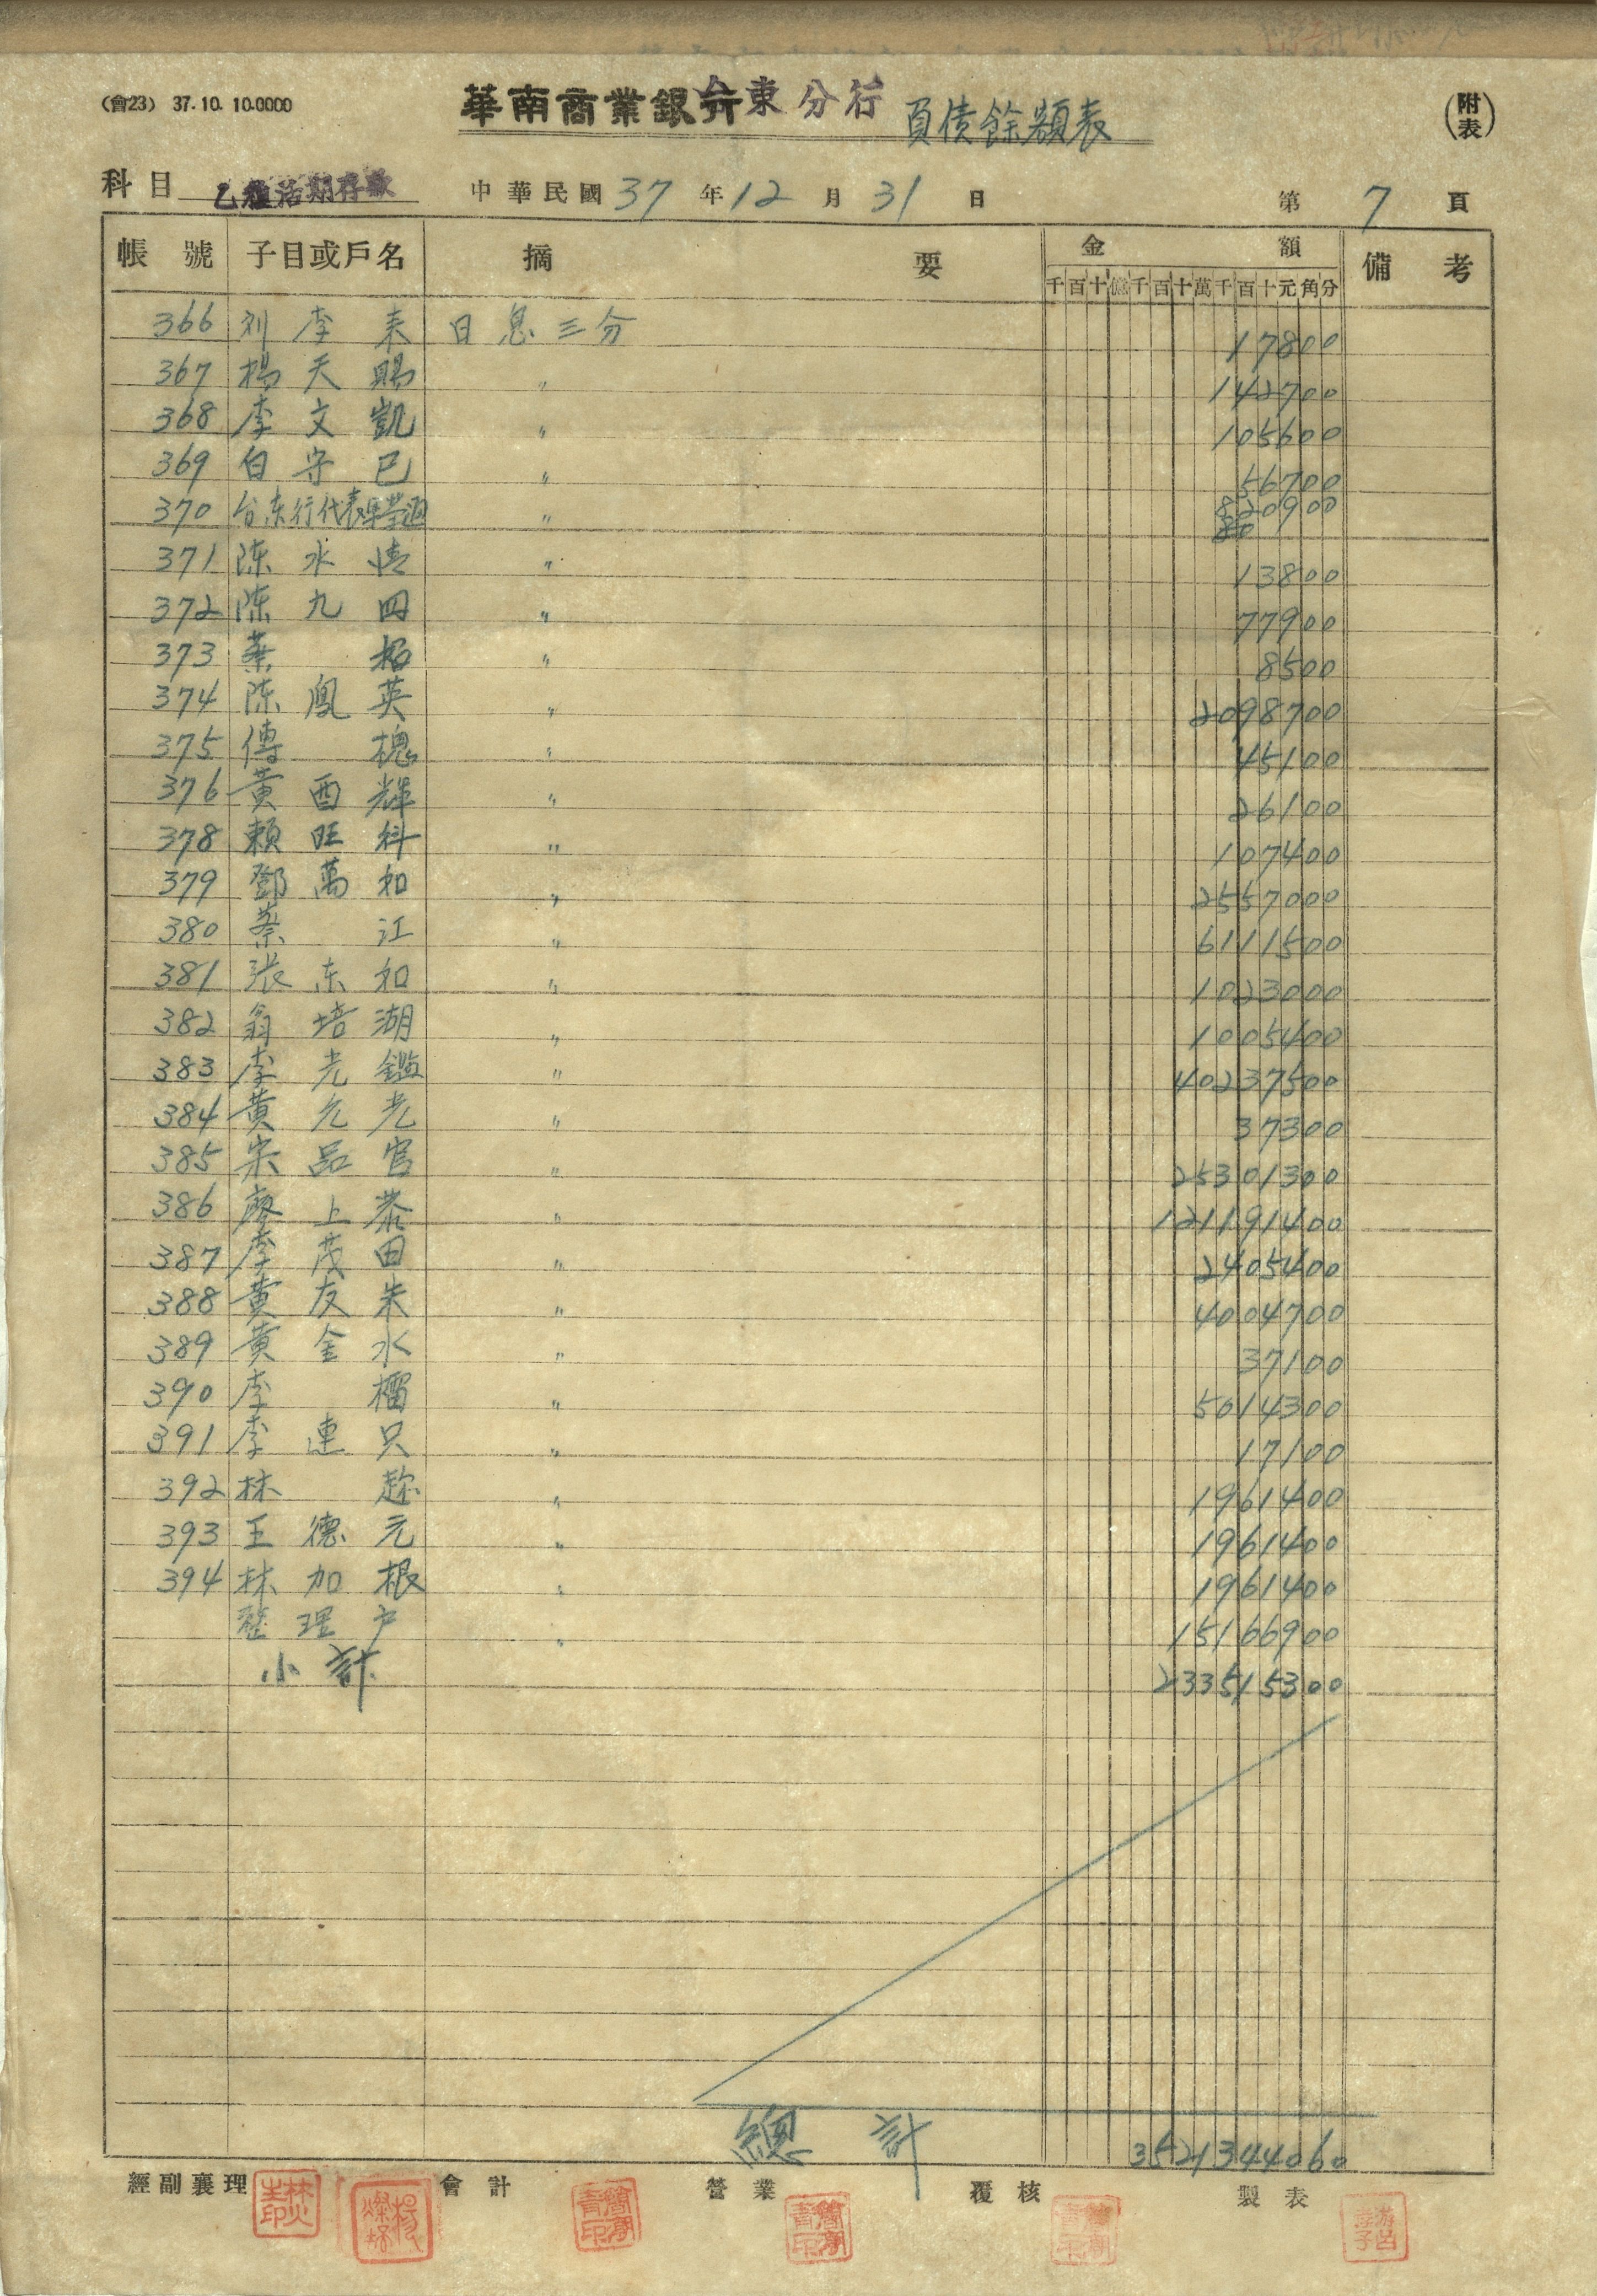 (會23) 37.10.10.0000
華南商業銀行台東分行 負債餘額表
(附表)
科目 乙種活期存款 中華民國37年12月31日 第7頁
帳號 子目或戶名 摘要 金額 備考
千百十億千百十萬千百十元角分
366 刘李来 日息三分 17800
367 楊天賜 〃 142700
368 李文凱 〃 105600
369 白守己 〃 56700
370 台东行代表 〃 820900
371 陈水 〃 13800
372 陈九四 〃 77900
373 蔡 〃 8500
374 陈鳳英 〃 2098700
375 傳槐 〃 45100
376 黃酉輝 〃 26100
378 賴旺科 〃 107400
379 鄧萬和 〃 2557000
380 蔡江 〃 6111500
381 張东和 〃 1023000
382 翁培湖 〃 1005400
383 李光鑑 〃 40237500
384 黃允光 〃 37300
385 宋品官 〃 25301300
386 廖上恭 〃 121191400
387 李茂田 〃 2405400
388 黃友朱 〃 4004700
389 黃金水 〃 37100
390 李榴 〃 5014300
391 李連只 〃 17100
392 林 〃 1961400
393 王德元 〃 1961400
394 林加根 〃 1961400
整理户 〃 15166900
小計 233515300
總計 3521344060
經副襄理 會計 營業 覆核 製表